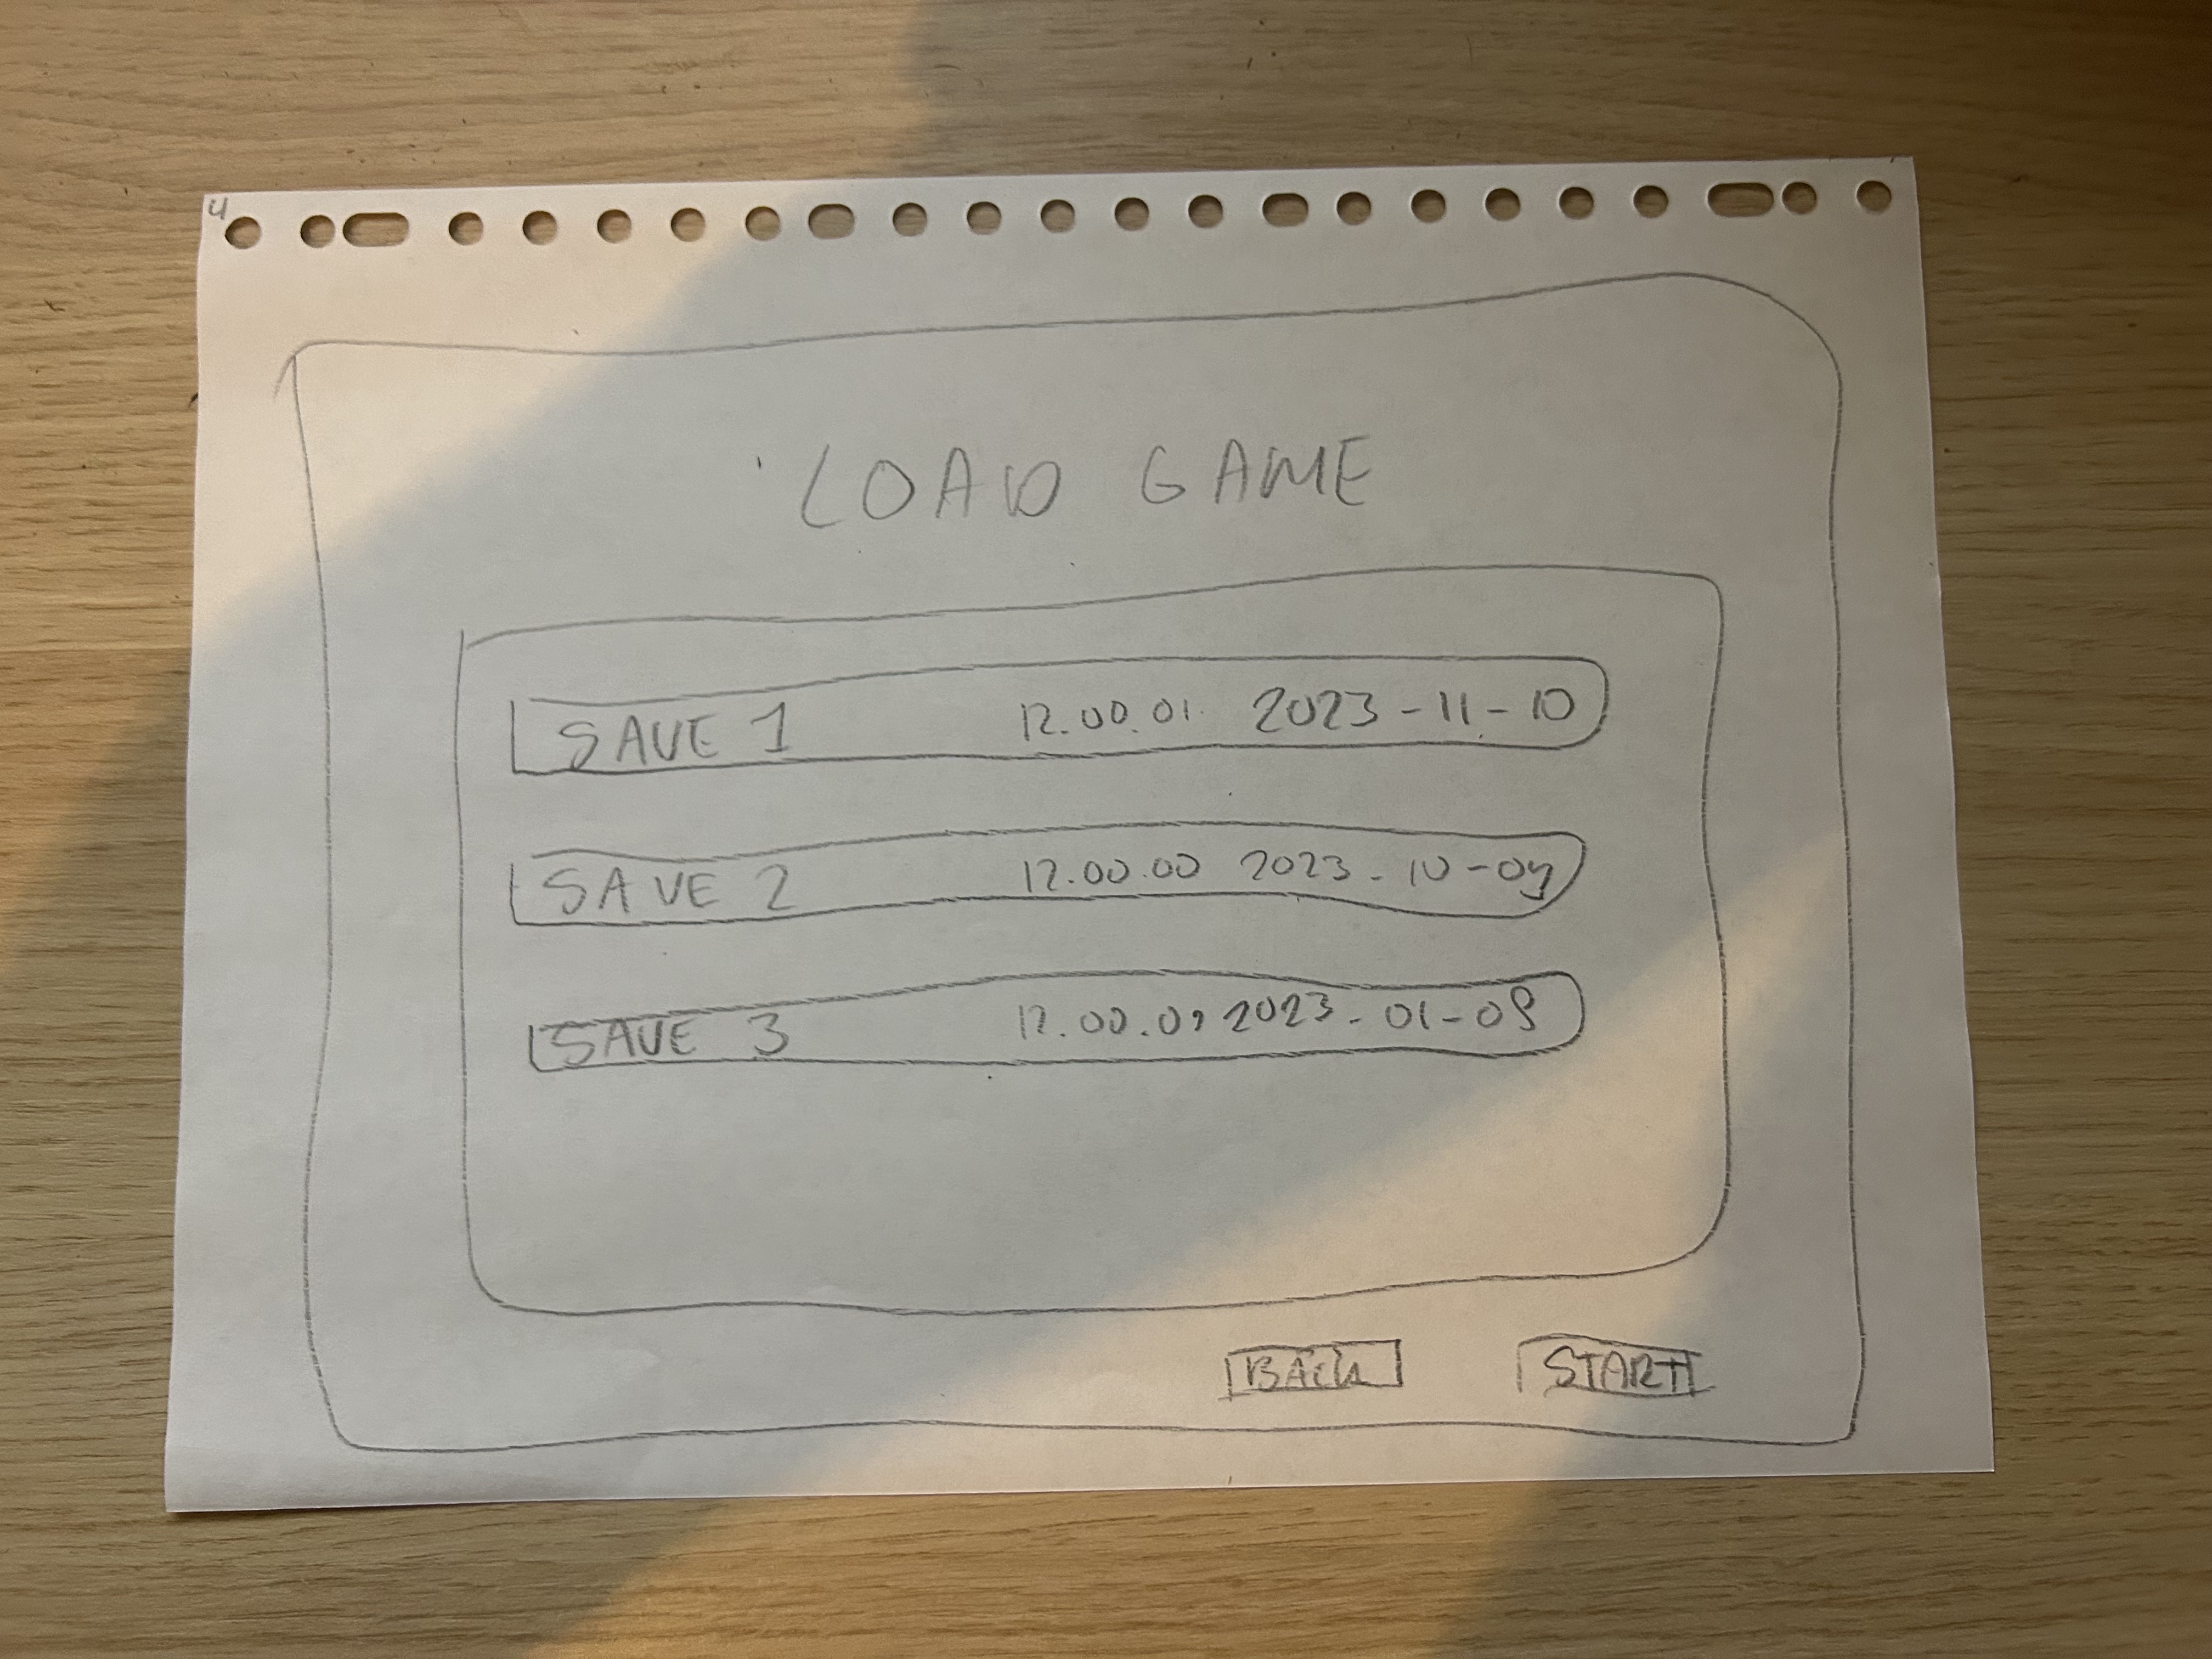 4
LOAD GAME
SAVE 1 12.00.01 2023-11-10
SAVE 2 12.00.00 2023-10-09
SAVE 3 12.00.01 2023-01-09
BACK START